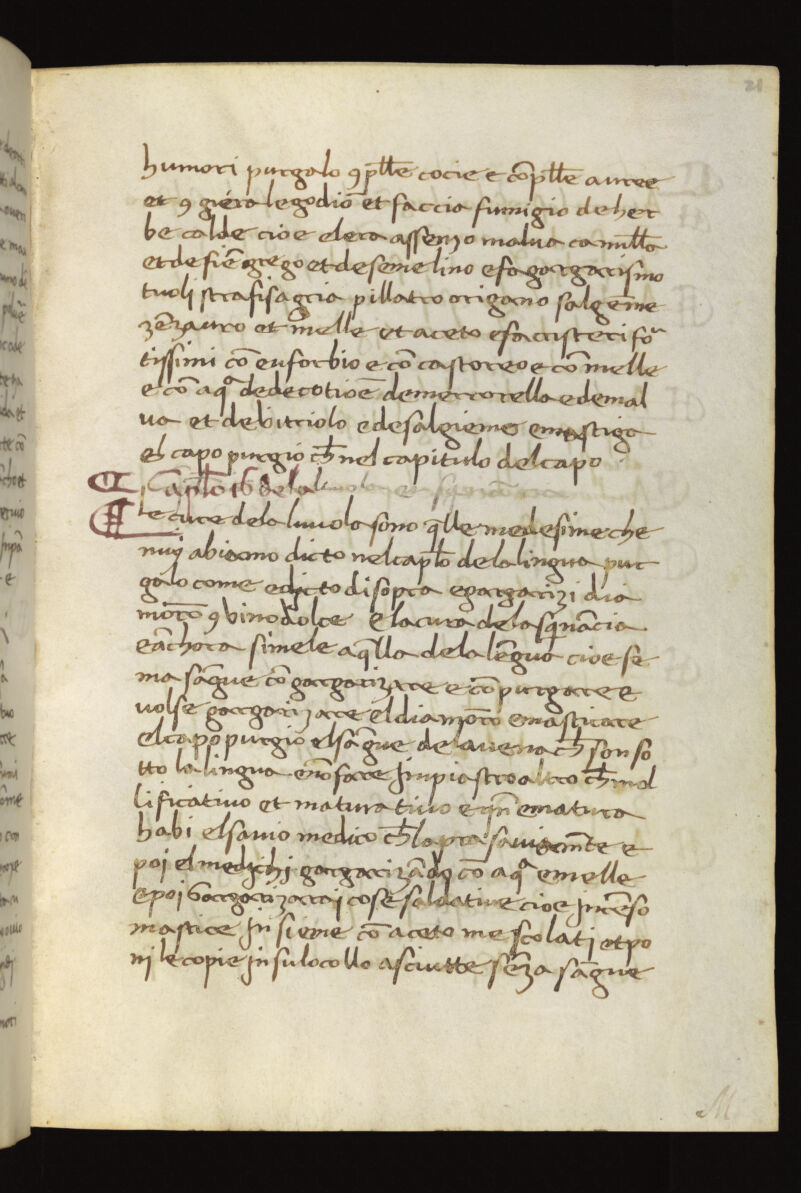 21
humori purgalo ꝯ pll̃e cocie e cõ pll̃e auree
et ꝯ giera legodiõ et faccia fumigio de her
be calde cioe elera assenzo malua camill̃a
et de fiẽ grego et de seme lino e fa gargarismo
tuoli strafisagria pillatro origano salgẽme
zẽzauro et melle et aceto e fa cristeri for
tissimi cõ euforbio e cõ castoreo e cõ melle
e cõ aqa de decotioẽ de mercorella e de mal
ua et de vitriolo e de salgieme e mastiga
el capo purgio ch̃ nel capitulo del capo
Caplõ 16 de la
le cure de la luuola sono qlle medesime che
nuj abiamo dicto nel caplõ de la lingua pur
galo come e dicto di sopra e gargarizi dia
morõ ꝯ vino dolce E la cura de la sqnãcia
e ãchora simele a qlla de la lẽgua cioe se
ma sãgue cõ gargarizare e cõ purgare e
uolse gargarizare el diamorõ e masticare
el capo purgio el sãgue de la uena ch̃ son so
tto la lingua e nõ fare Jmpiastro altro ch̃ mol
lificatiuo et maturatiuo e qñ e matura
habi el sauio medico ch̃ la pra sauiamẽte e
poi el medichi gargarizãdo cõ aqa e melle
e poi Gargarizarai cose saldatiue cioe Jncẽso
mastice Jnsieme cõ aceto mescolati et po
ni le copie Jn sulo collo asciutte sẽza sãgue
M